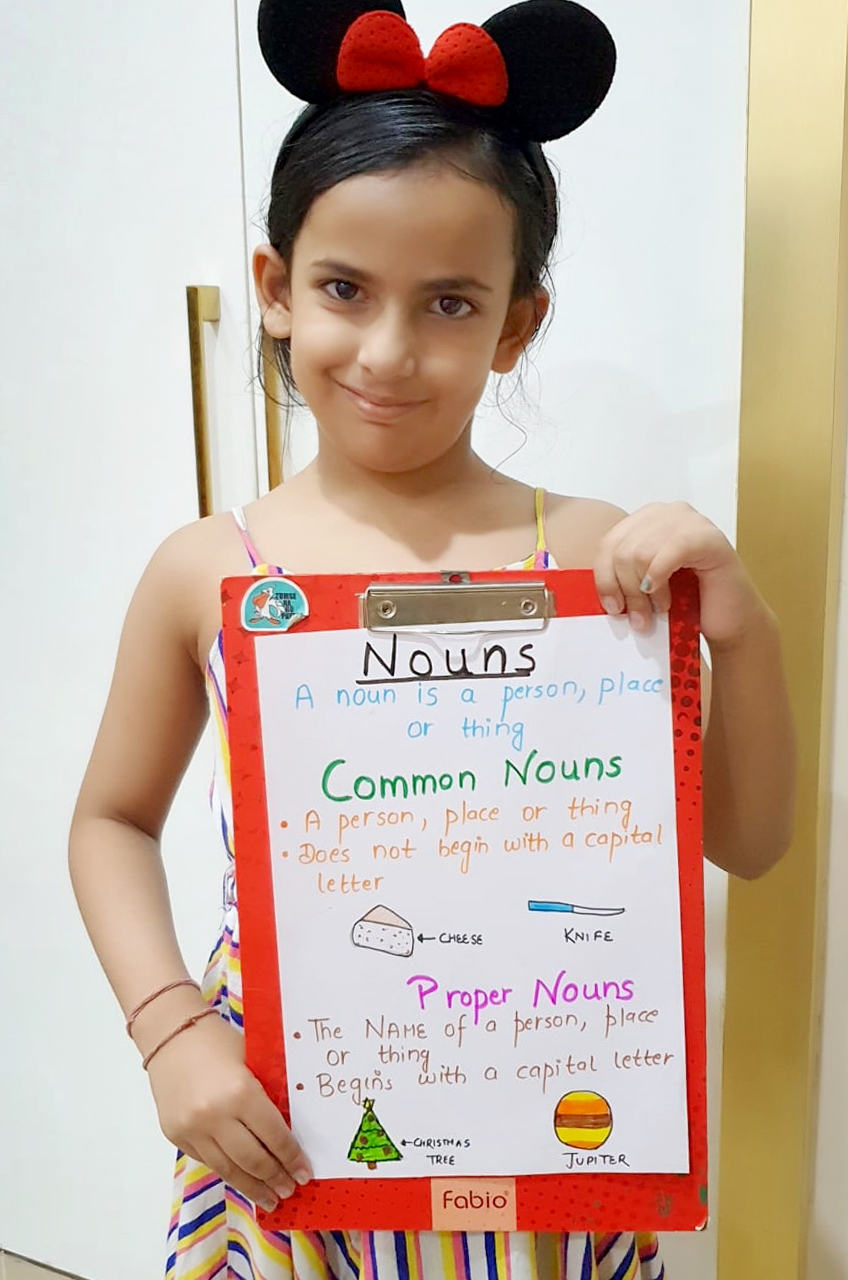 Nouns
A noun is a person, place
or thing
Common Nouns
• A person, place or thing
• Does not begin with a capital
letter
← CHEESE
KNIFE
Proper Nouns
• The NAME of a person, place
or thing
• Begins with a capital letter
← CHRISTMAS
TREE
JUPITER
Fabio